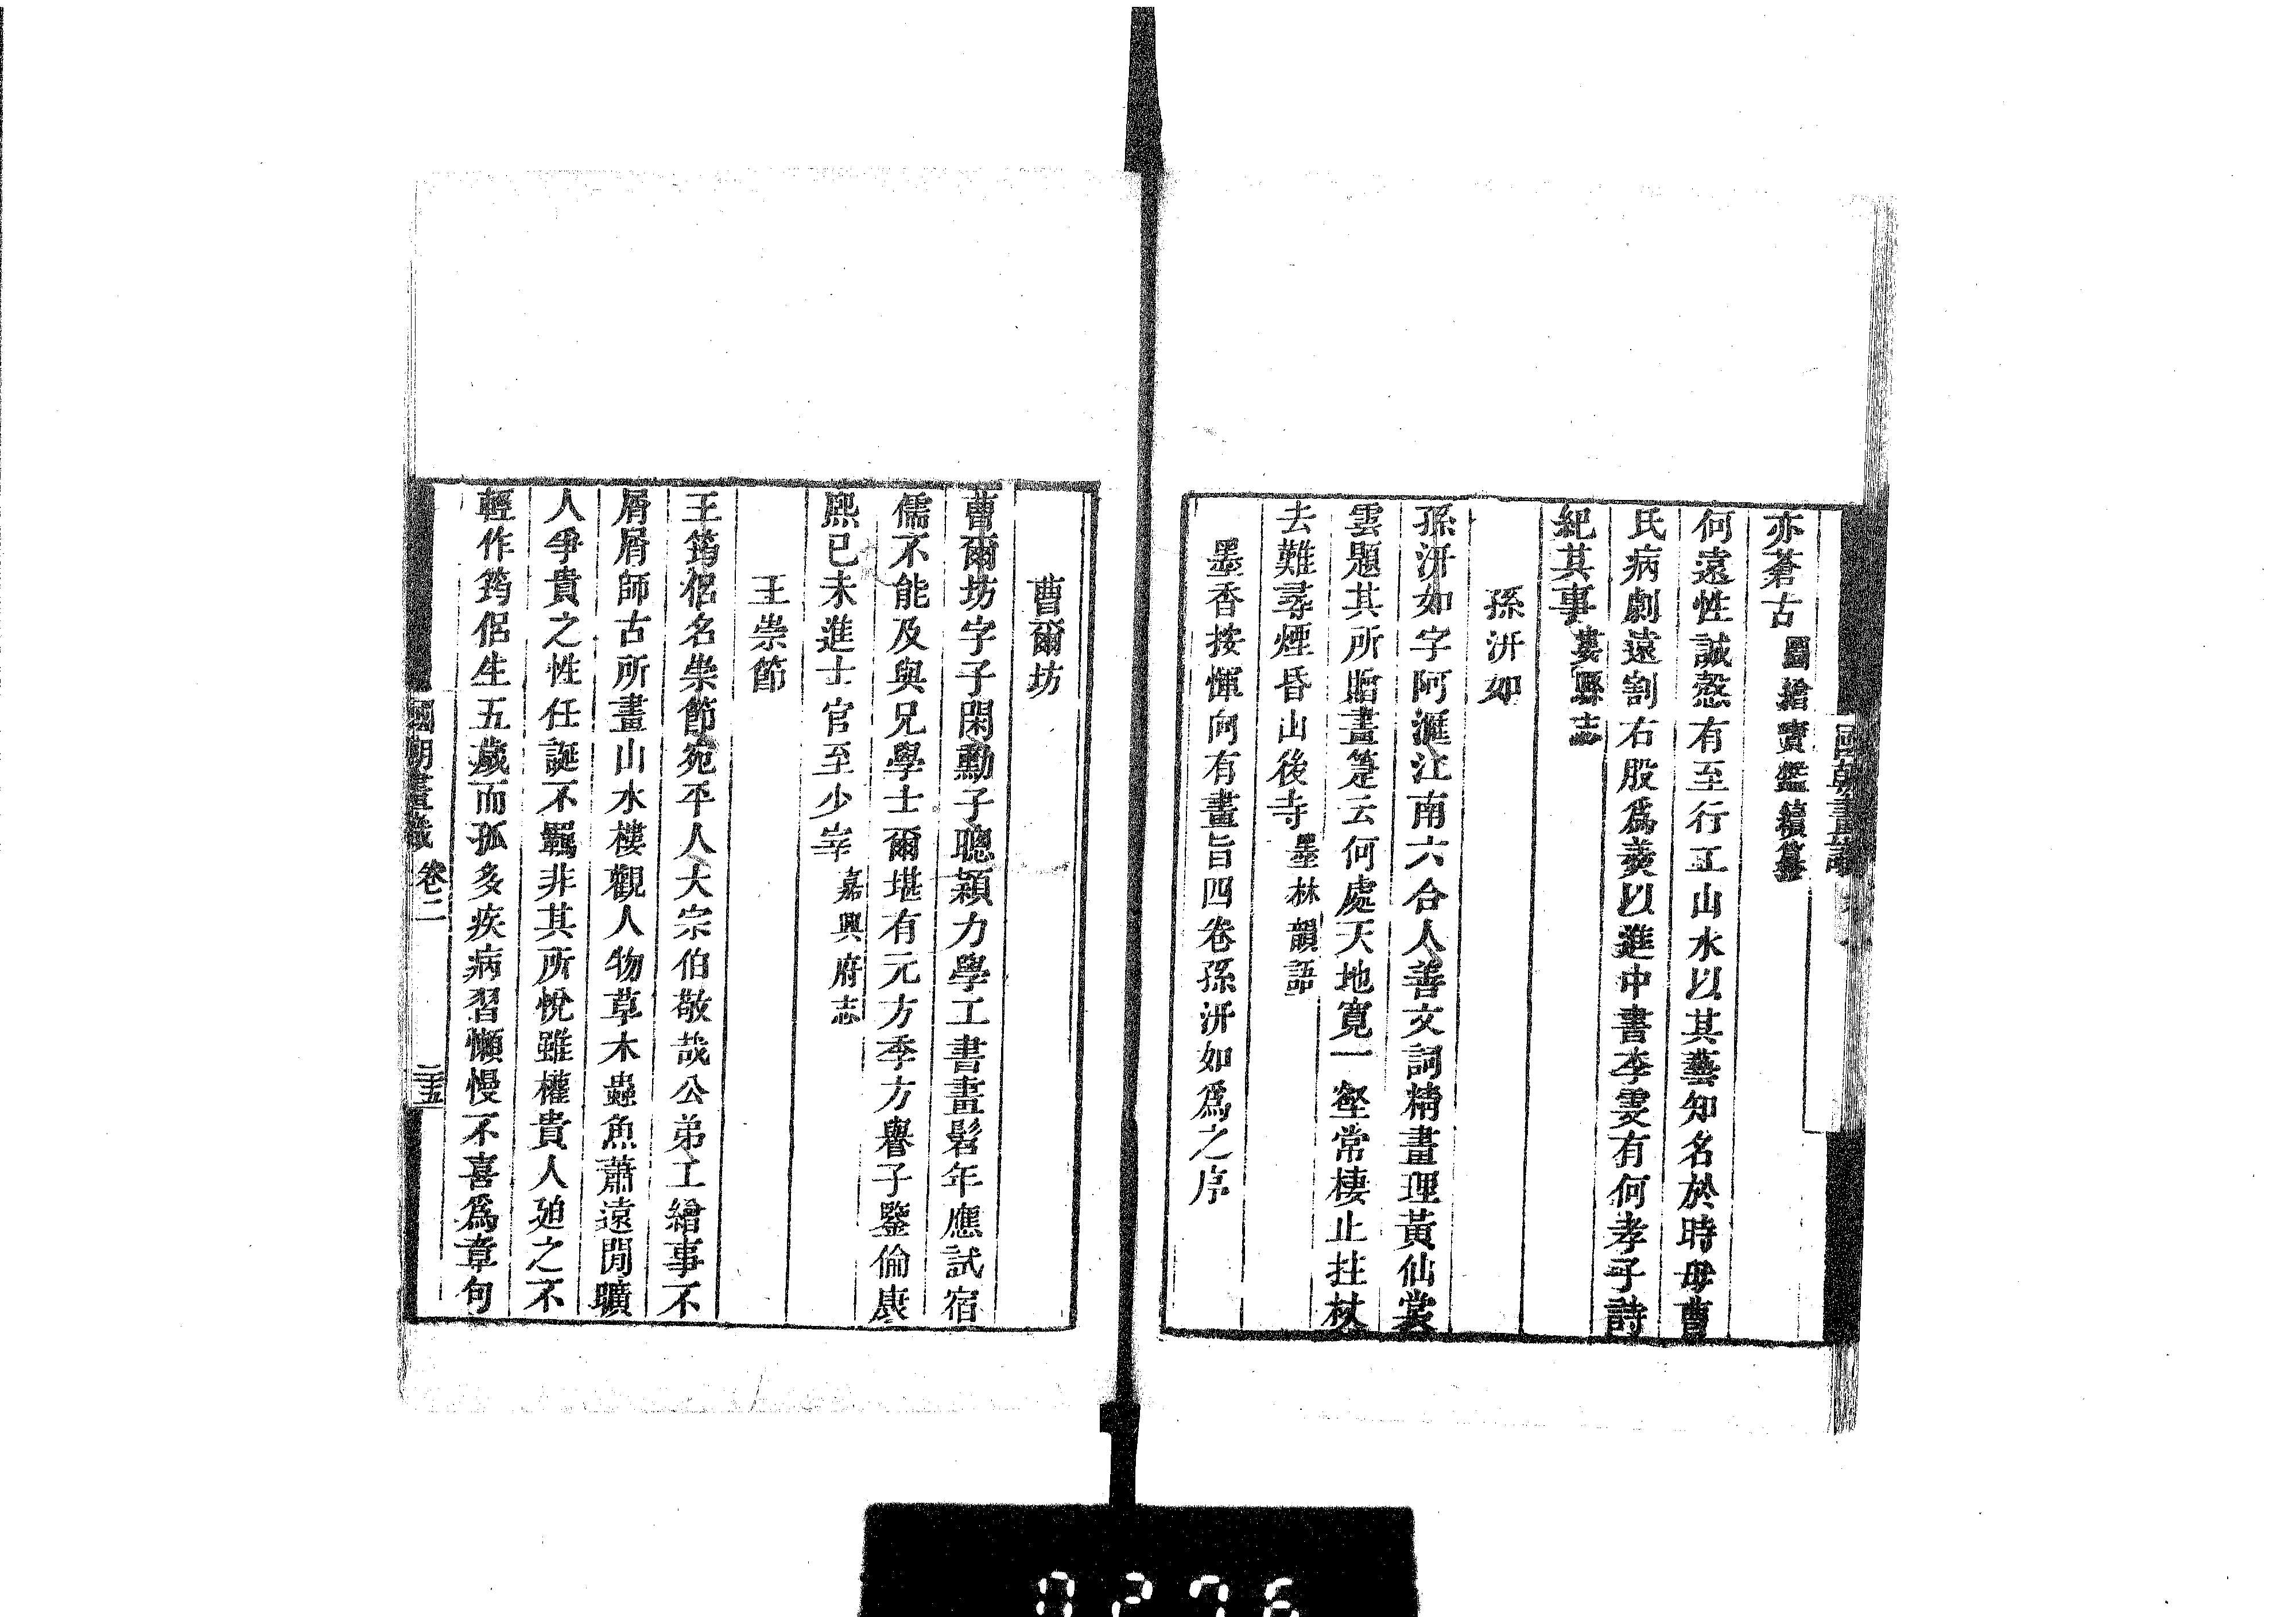 國朝畫識
亦蒼古圖繪寶鑑續纂
何遠性誠愨有至行工山水以其藝知名於時母曹
氏病劇遠割右股爲羹以進中書李雯有何孝子詩
紀其事婁縣志
孫汧如
孫汧如字阿滙江南六合人善文詞精畫理黃仙裳
雲題其所贈畫箑云何處天地寬一壑常棲止拄杖
去難尋煙昏山後寺墨林韻語
墨香按惲向有畫旨四卷孫汧如爲之序
曹爾坊
曹爾坊字子閑勳子聰穎力學工書畫髫年應試宿
儒不能及與兄學士爾堪有元方季方譽子鑒倫康
熙己未進士官至少宰嘉興府志
王崇節
王筠侶名崇節宛平人大宗伯敬哉公弟工繪事不
屑屑師古所畫山水樓觀人物草木蟲魚蕭遠閒曠
人爭貴之性任誕不羈非其所悅雖權貴人廹之不
輕作筠侶生五歲而孤多疾病習懶慢不喜爲章句
國朝畫識 卷二 二十五
0276